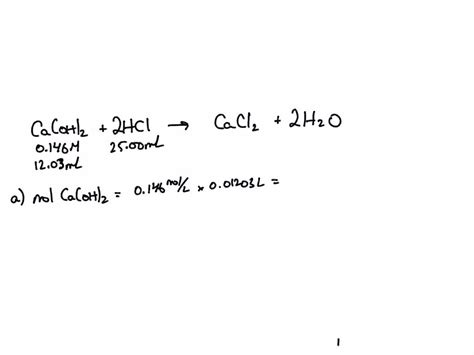 Ca(OH)2 + 2HCl → CaCl2 + 2H2O
0.146M 25.00mL
12.03mL
a) mol Ca(OH)2 = 0.146 mol/L × 0.01203L =